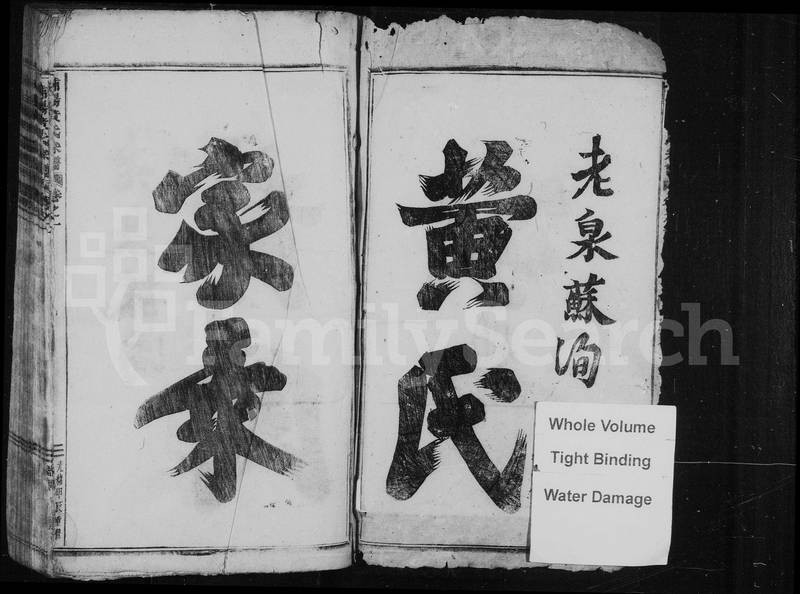 老泉蘇洵
黃氏
家乘
Whole Volume
Tight Binding
Water Damage
FamilySearch